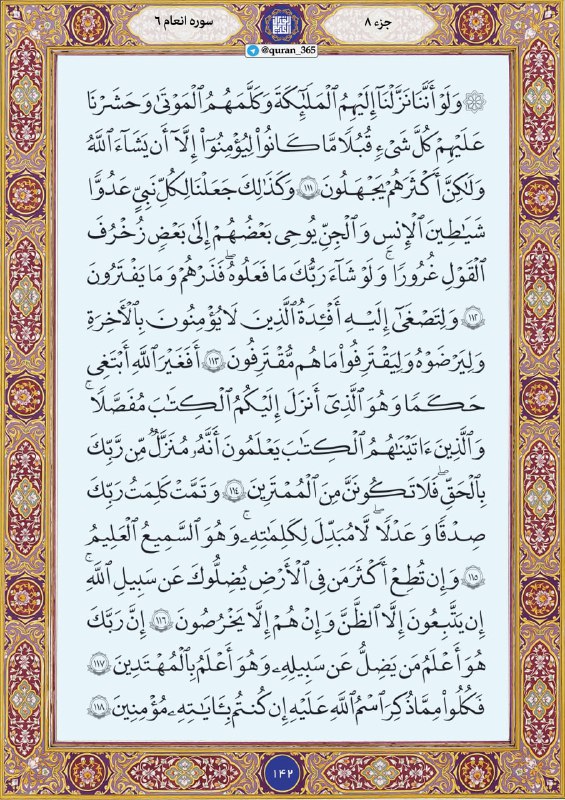 سوره انعام ۶
جزء ۸
@quran_365
۞ وَلَوْ أَنَّنَا نَزَّلْنَآ إِلَيْهِمُ ٱلْمَلَٰٓئِكَةَ وَكَلَّمَهُمُ ٱلْمَوْتَىٰ وَحَشَرْنَا
عَلَيْهِمْ كُلَّ شَىْءٍ قُبُلًا مَّا كَانُوا۟ لِيُؤْمِنُوٓا۟ إِلَّآ أَن يَشَآءَ ٱللَّهُ
وَلَٰكِنَّ أَكْثَرَهُمْ يَجْهَلُونَ ١١١ وَكَذَٰلِكَ جَعَلْنَا لِكُلِّ نَبِىٍّ عَدُوًّا
شَيَٰطِينَ ٱلْإِنسِ وَٱلْجِنِّ يُوحِى بَعْضُهُمْ إِلَىٰ بَعْضٍ زُخْرُفَ
ٱلْقَوْلِ غُرُورًا ۚ وَلَوْ شَآءَ رَبُّكَ مَا فَعَلُوهُ ۖ فَذَرْهُمْ وَمَا يَفْتَرُونَ
١١٢ وَلِتَصْغَىٰٓ إِلَيْهِ أَفْـِٔدَةُ ٱلَّذِينَ لَا يُؤْمِنُونَ بِٱلْءَاخِرَةِ
وَلِيَرْضَوْهُ وَلِيَقْتَرِفُوا۟ مَا هُم مُّقْتَرِفُونَ ١١٣ أَفَغَيْرَ ٱللَّهِ أَبْتَغِى
حَكَمًا وَهُوَ ٱلَّذِىٓ أَنزَلَ إِلَيْكُمُ ٱلْكِتَٰبَ مُفَصَّلًا ۚ
وَٱلَّذِينَ ءَاتَيْنَٰهُمُ ٱلْكِتَٰبَ يَعْلَمُونَ أَنَّهُۥ مُنَزَّلٌ مِّن رَّبِّكَ
بِٱلْحَقِّ ۖ فَلَا تَكُونَنَّ مِنَ ٱلْمُمْتَرِينَ ١١٤ وَتَمَّتْ كَلِمَتُ رَبِّكَ
صِدْقًا وَعَدْلًا ۚ لَّا مُبَدِّلَ لِكَلِمَٰتِهِۦ ۚ وَهُوَ ٱلسَّمِيعُ ٱلْعَلِيمُ
١١٥ وَإِن تُطِعْ أَكْثَرَ مَن فِى ٱلْأَرْضِ يُضِلُّوكَ عَن سَبِيلِ ٱللَّهِ ۚ
إِن يَتَّبِعُونَ إِلَّا ٱلظَّنَّ وَإِنْ هُمْ إِلَّا يَخْرُصُونَ ١١٦ إِنَّ رَبَّكَ
هُوَ أَعْلَمُ مَن يَضِلُّ عَن سَبِيلِهِۦ ۖ وَهُوَ أَعْلَمُ بِٱلْمُهْتَدِينَ ١١٧
فَكُلُوا۟ مِمَّا ذُكِرَ ٱسْمُ ٱللَّهِ عَلَيْهِ إِن كُنتُم بِـَٔايَٰتِهِۦ مُؤْمِنِينَ ١١٨
۱۴۲